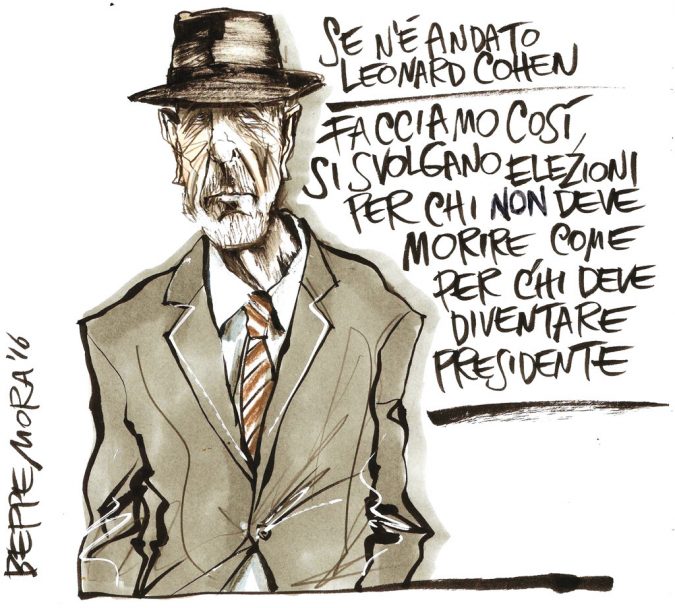 SE N'É ANDATO
LEONARD COHEN
FACCIAMO COSÍ,
SI SVOLGANO ELEZIONI
PER CHI NON DEVE
MORIRE COME
PER CHI DEVE
DIVENTARE
PRESIDENTE
BEPPE MORA '16